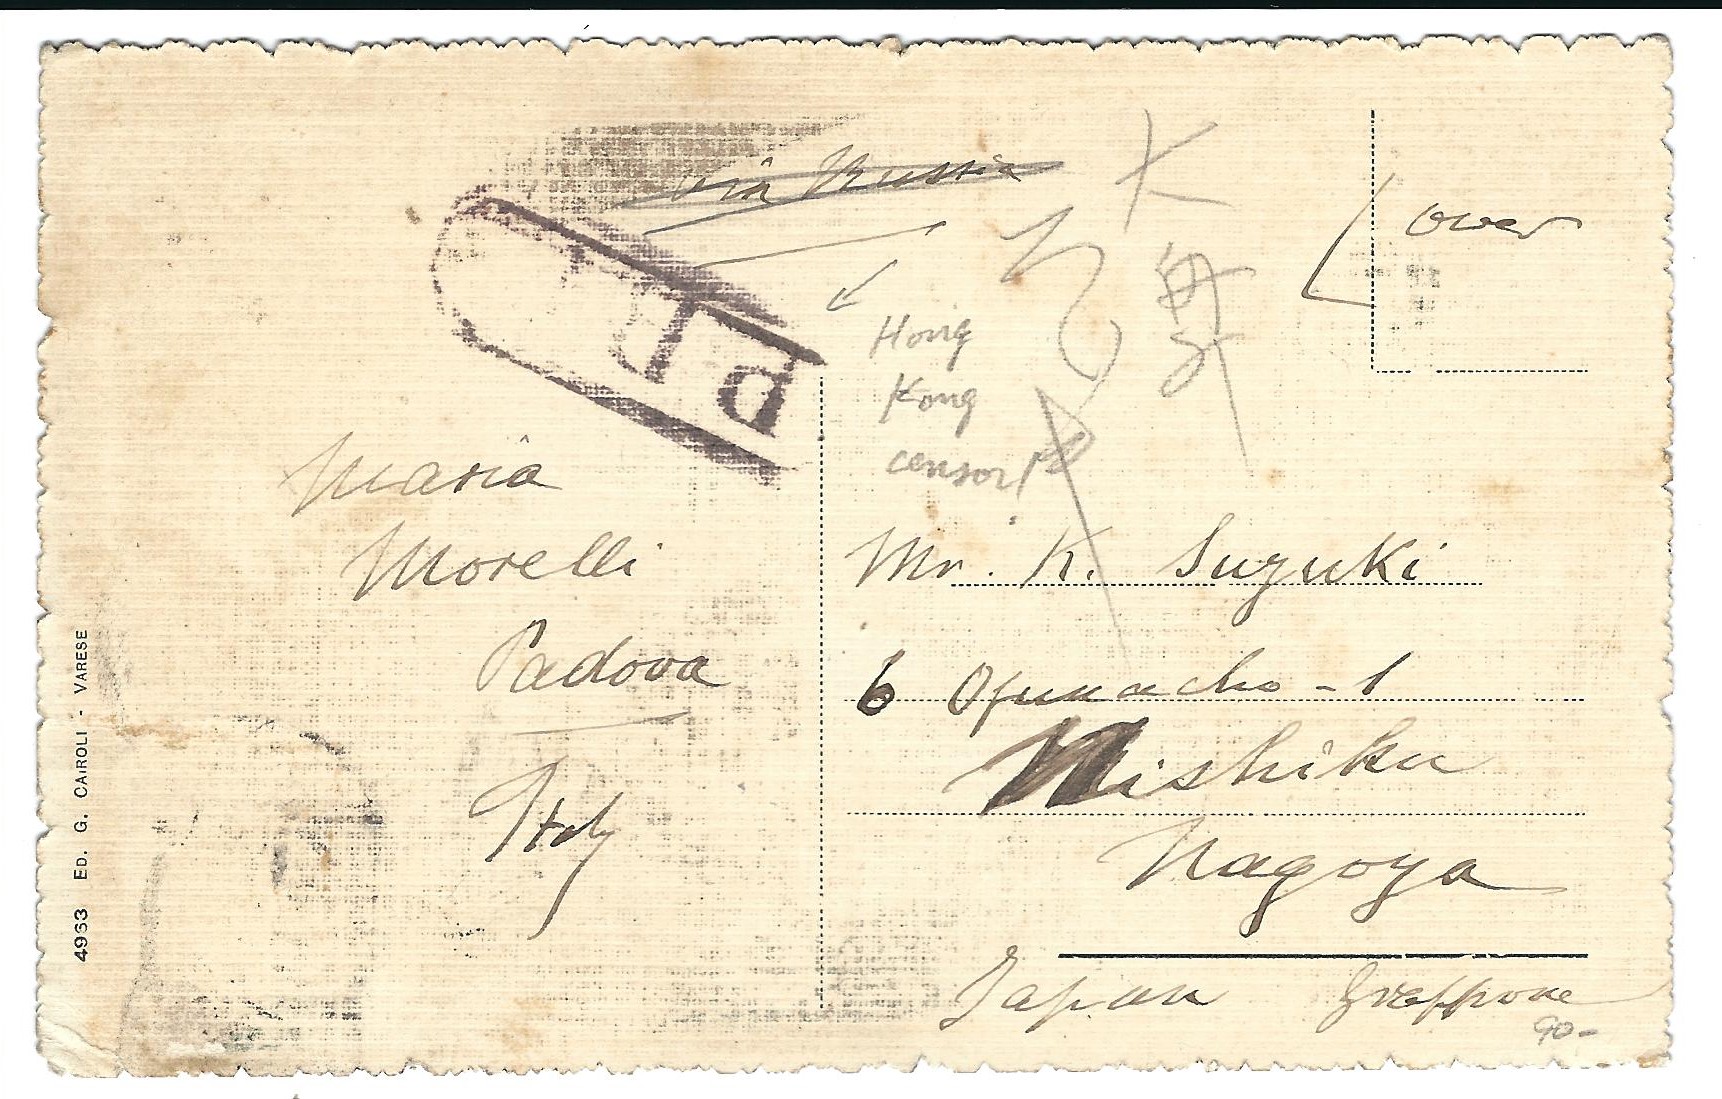 via Russia
over
Hong
Kong
censor
Maria
Morelli
Padova
Italy
Mr. K. Suzuki
6 Ofunacho - 1
Nishiku
Nagoya
Japan
Greppone
90-
4963 ED. G. CAIROLI - VARESE